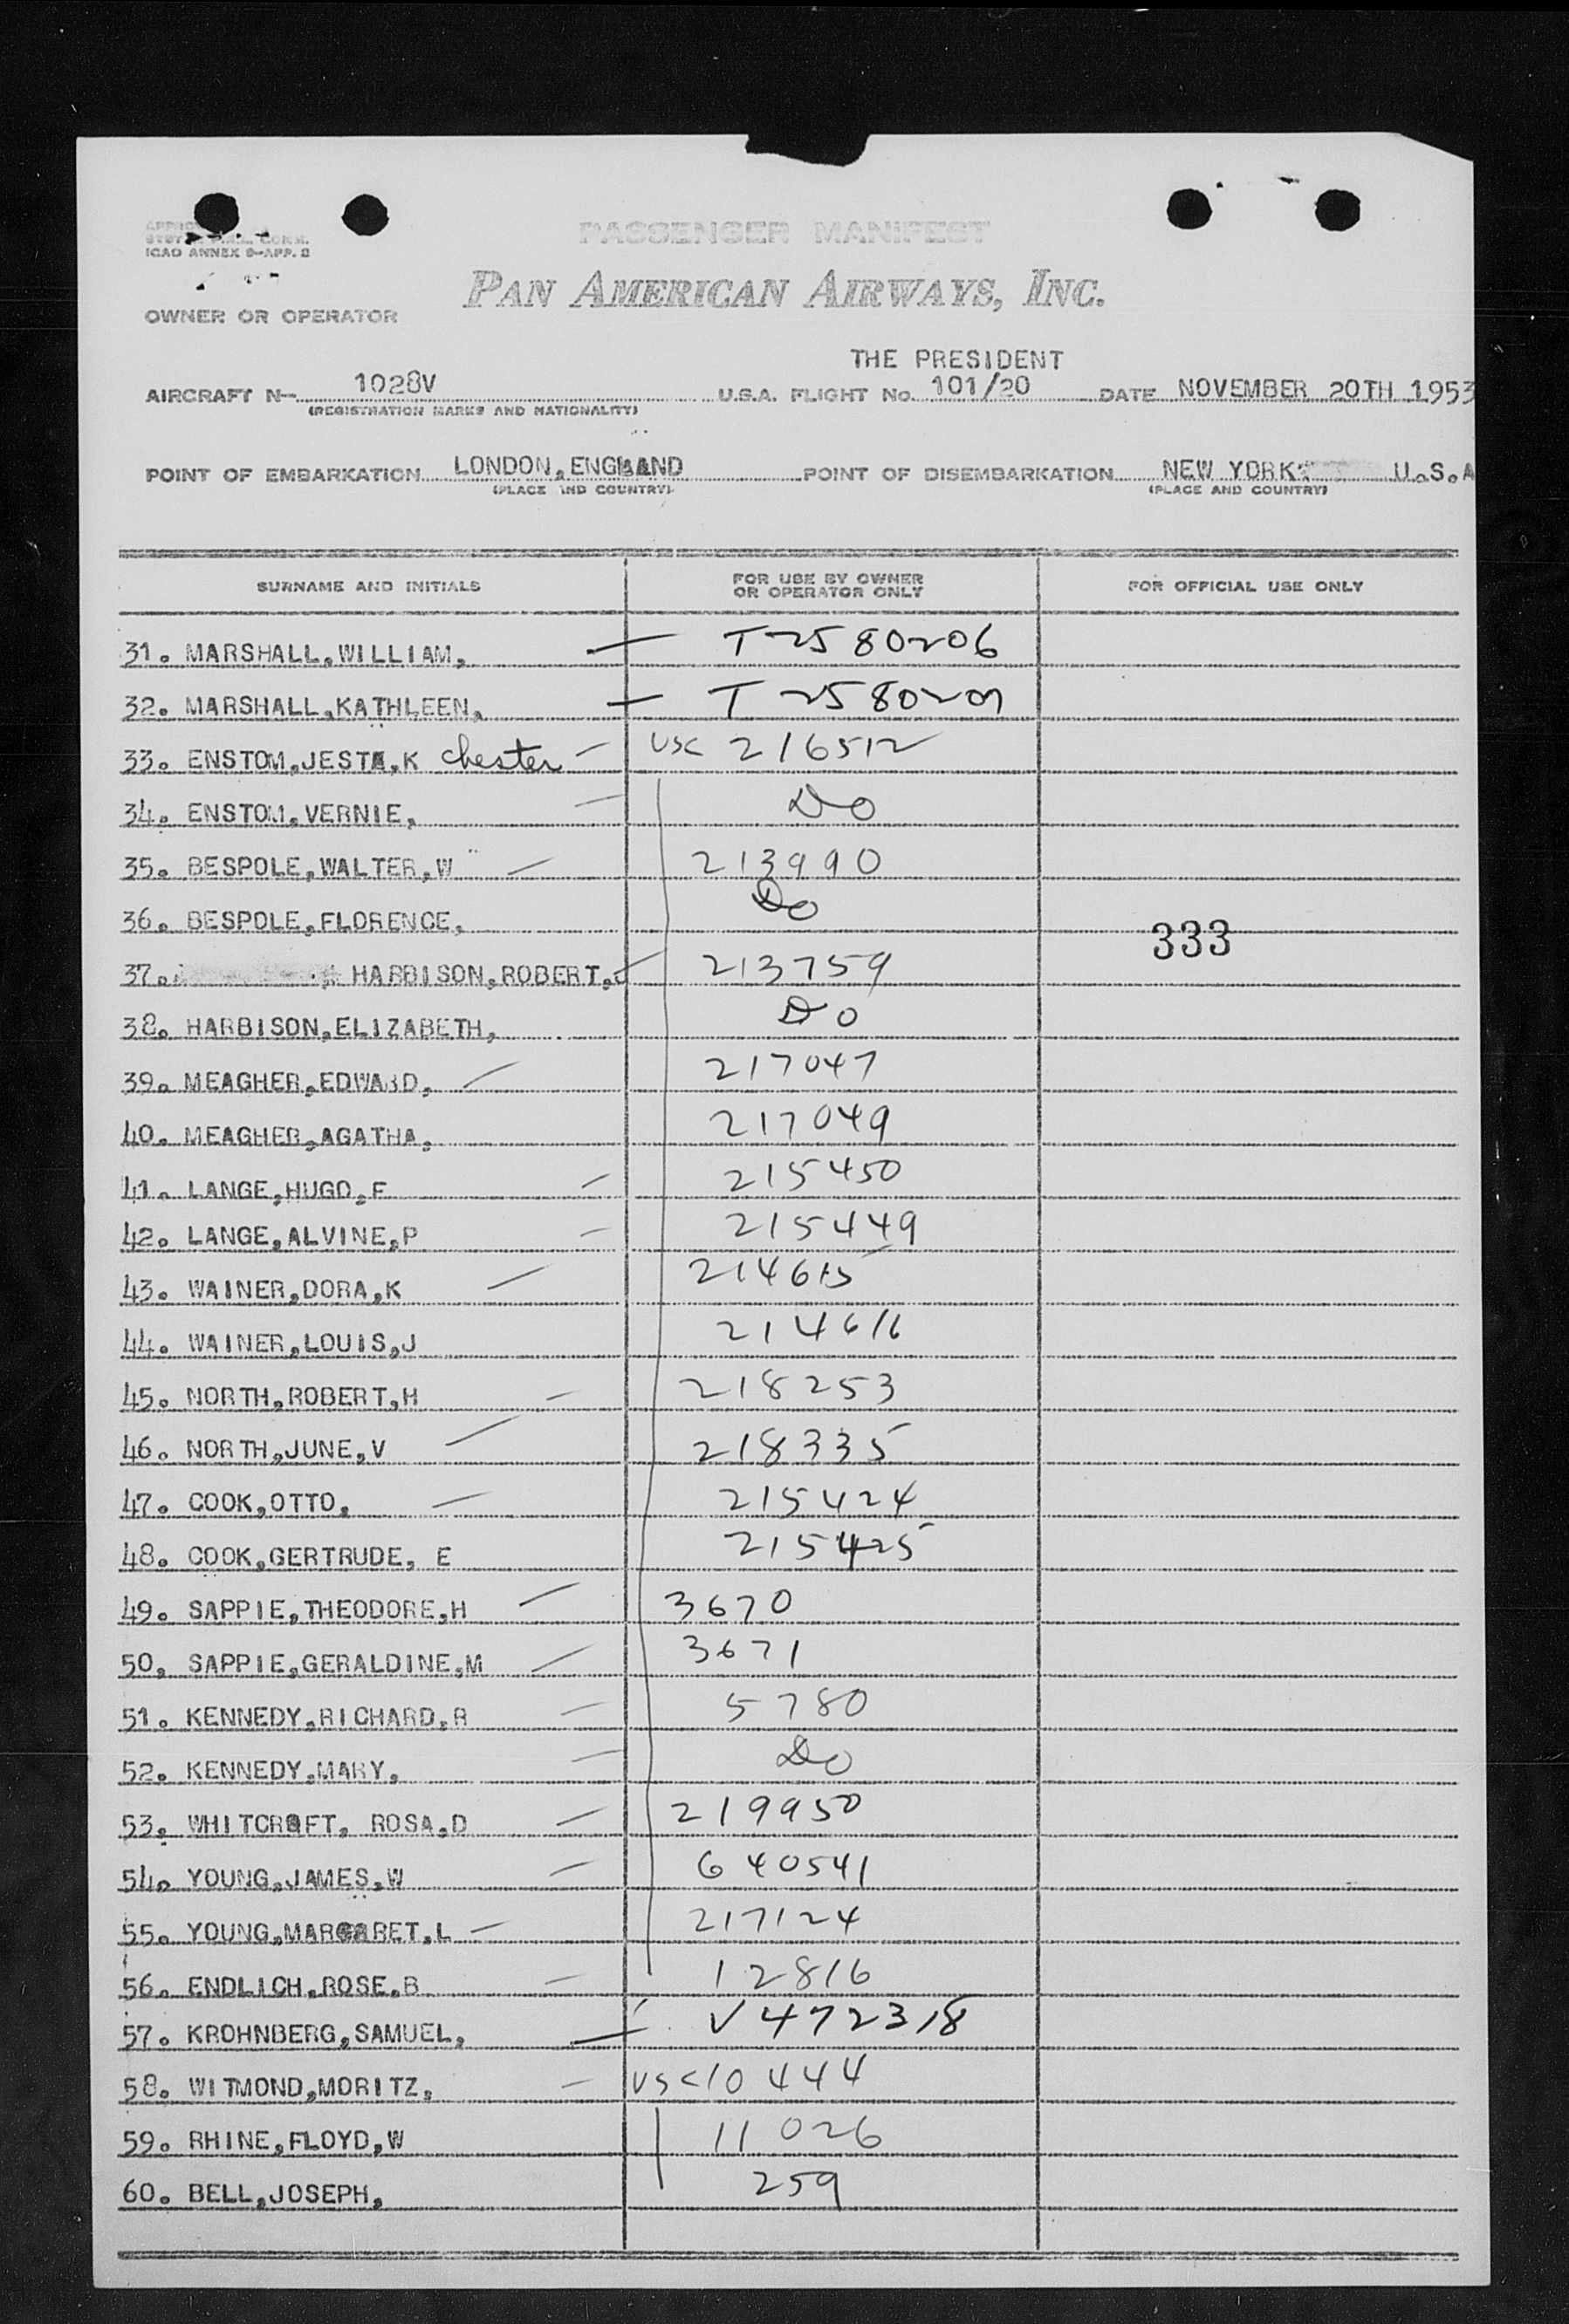 PASSENGER MANIFEST
ICAO ANNEX 9-APP. 2
PAN AMERICAN AIRWAYS, INC.
OWNER OR OPERATOR
THE PRESIDENT
AIRCRAFT N- 1028V U.S.A. FLIGHT No. 101/20 DATE NOVEMBER 20TH 1953
(REGISTRATION MARKS AND NATIONALITY)
POINT OF EMBARKATION LONDON, ENGLAND POINT OF DISEMBARKATION NEW YORK U.S.A
(PLACE AND COUNTRY) (PLACE AND COUNTRY)
SURNAME AND INITIALS FOR USE BY OWNER OR OPERATOR ONLY FOR OFFICIAL USE ONLY
31. MARSHALL,WILLIAM, — T2580206
32. MARSHALL,KATHLEEN, — T
33. ENSTOM,JESTA,K chester — USC 216512
34. ENSTOM,VERNIE, — DO
35. BESPOLE,WALTER,W — 213990
36. BESPOLE,FLORENCE, DO
333
37. HARBISON,ROBERT, 213759
38. HARBISON,ELIZABETH, DO
39. MEAGHER,EDWARD, — 217047
40. MEAGHER,AGATHA, 217049
41. LANGE,HUGO,F — 215450
42. LANGE,ALVINE,P — 215449
43. WAINER,DORA,K — 214615
44. WAINER,LOUIS,J 214616
45. NORTH,ROBERT,H — 218253
46. NORTH,JUNE,V — 218335
47. COOK,OTTO, — 215424
48. COOK,GERTRUDE, E 215425
49. SAPPIE,THEODORE,H — 3670
50. SAPPIE,GERALDINE,M — 3671
51. KENNEDY,RICHARD,R — 5780
52. KENNEDY,MARY, — DO
53. WHITCROFT, ROSA,D — 219950
54. YOUNG,JAMES,W — 640541
55. YOUNG,MARGARET,L — 217124
56. ENDLICH,ROSE,B — 12816
57. KROHNBERG,SAMUEL, — V472318
58. WITMOND,MORITZ, — USC10444
59. RHINE,FLOYD,W 11026
60. BELL,JOSEPH, 259